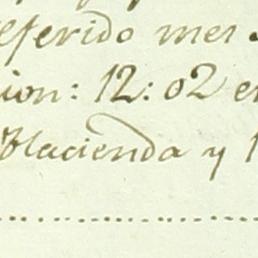 referido mes
ion: 12:02 e
Hacienda y 1